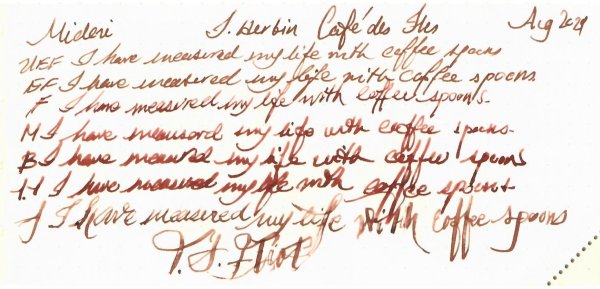 Midori J. Herbin Café des Îles Aug 2024
UEF I have measured my life with coffee spoons
EF I have measured my life with coffee spoons
F I have measured my life with coffee spoons.
M I have measured my life with coffee spoons.
B I have measured my life with coffee spoons
1.1 I have measured my life with coffee spoons
J I have measured my life with coffee spoons
T.S. Eliot